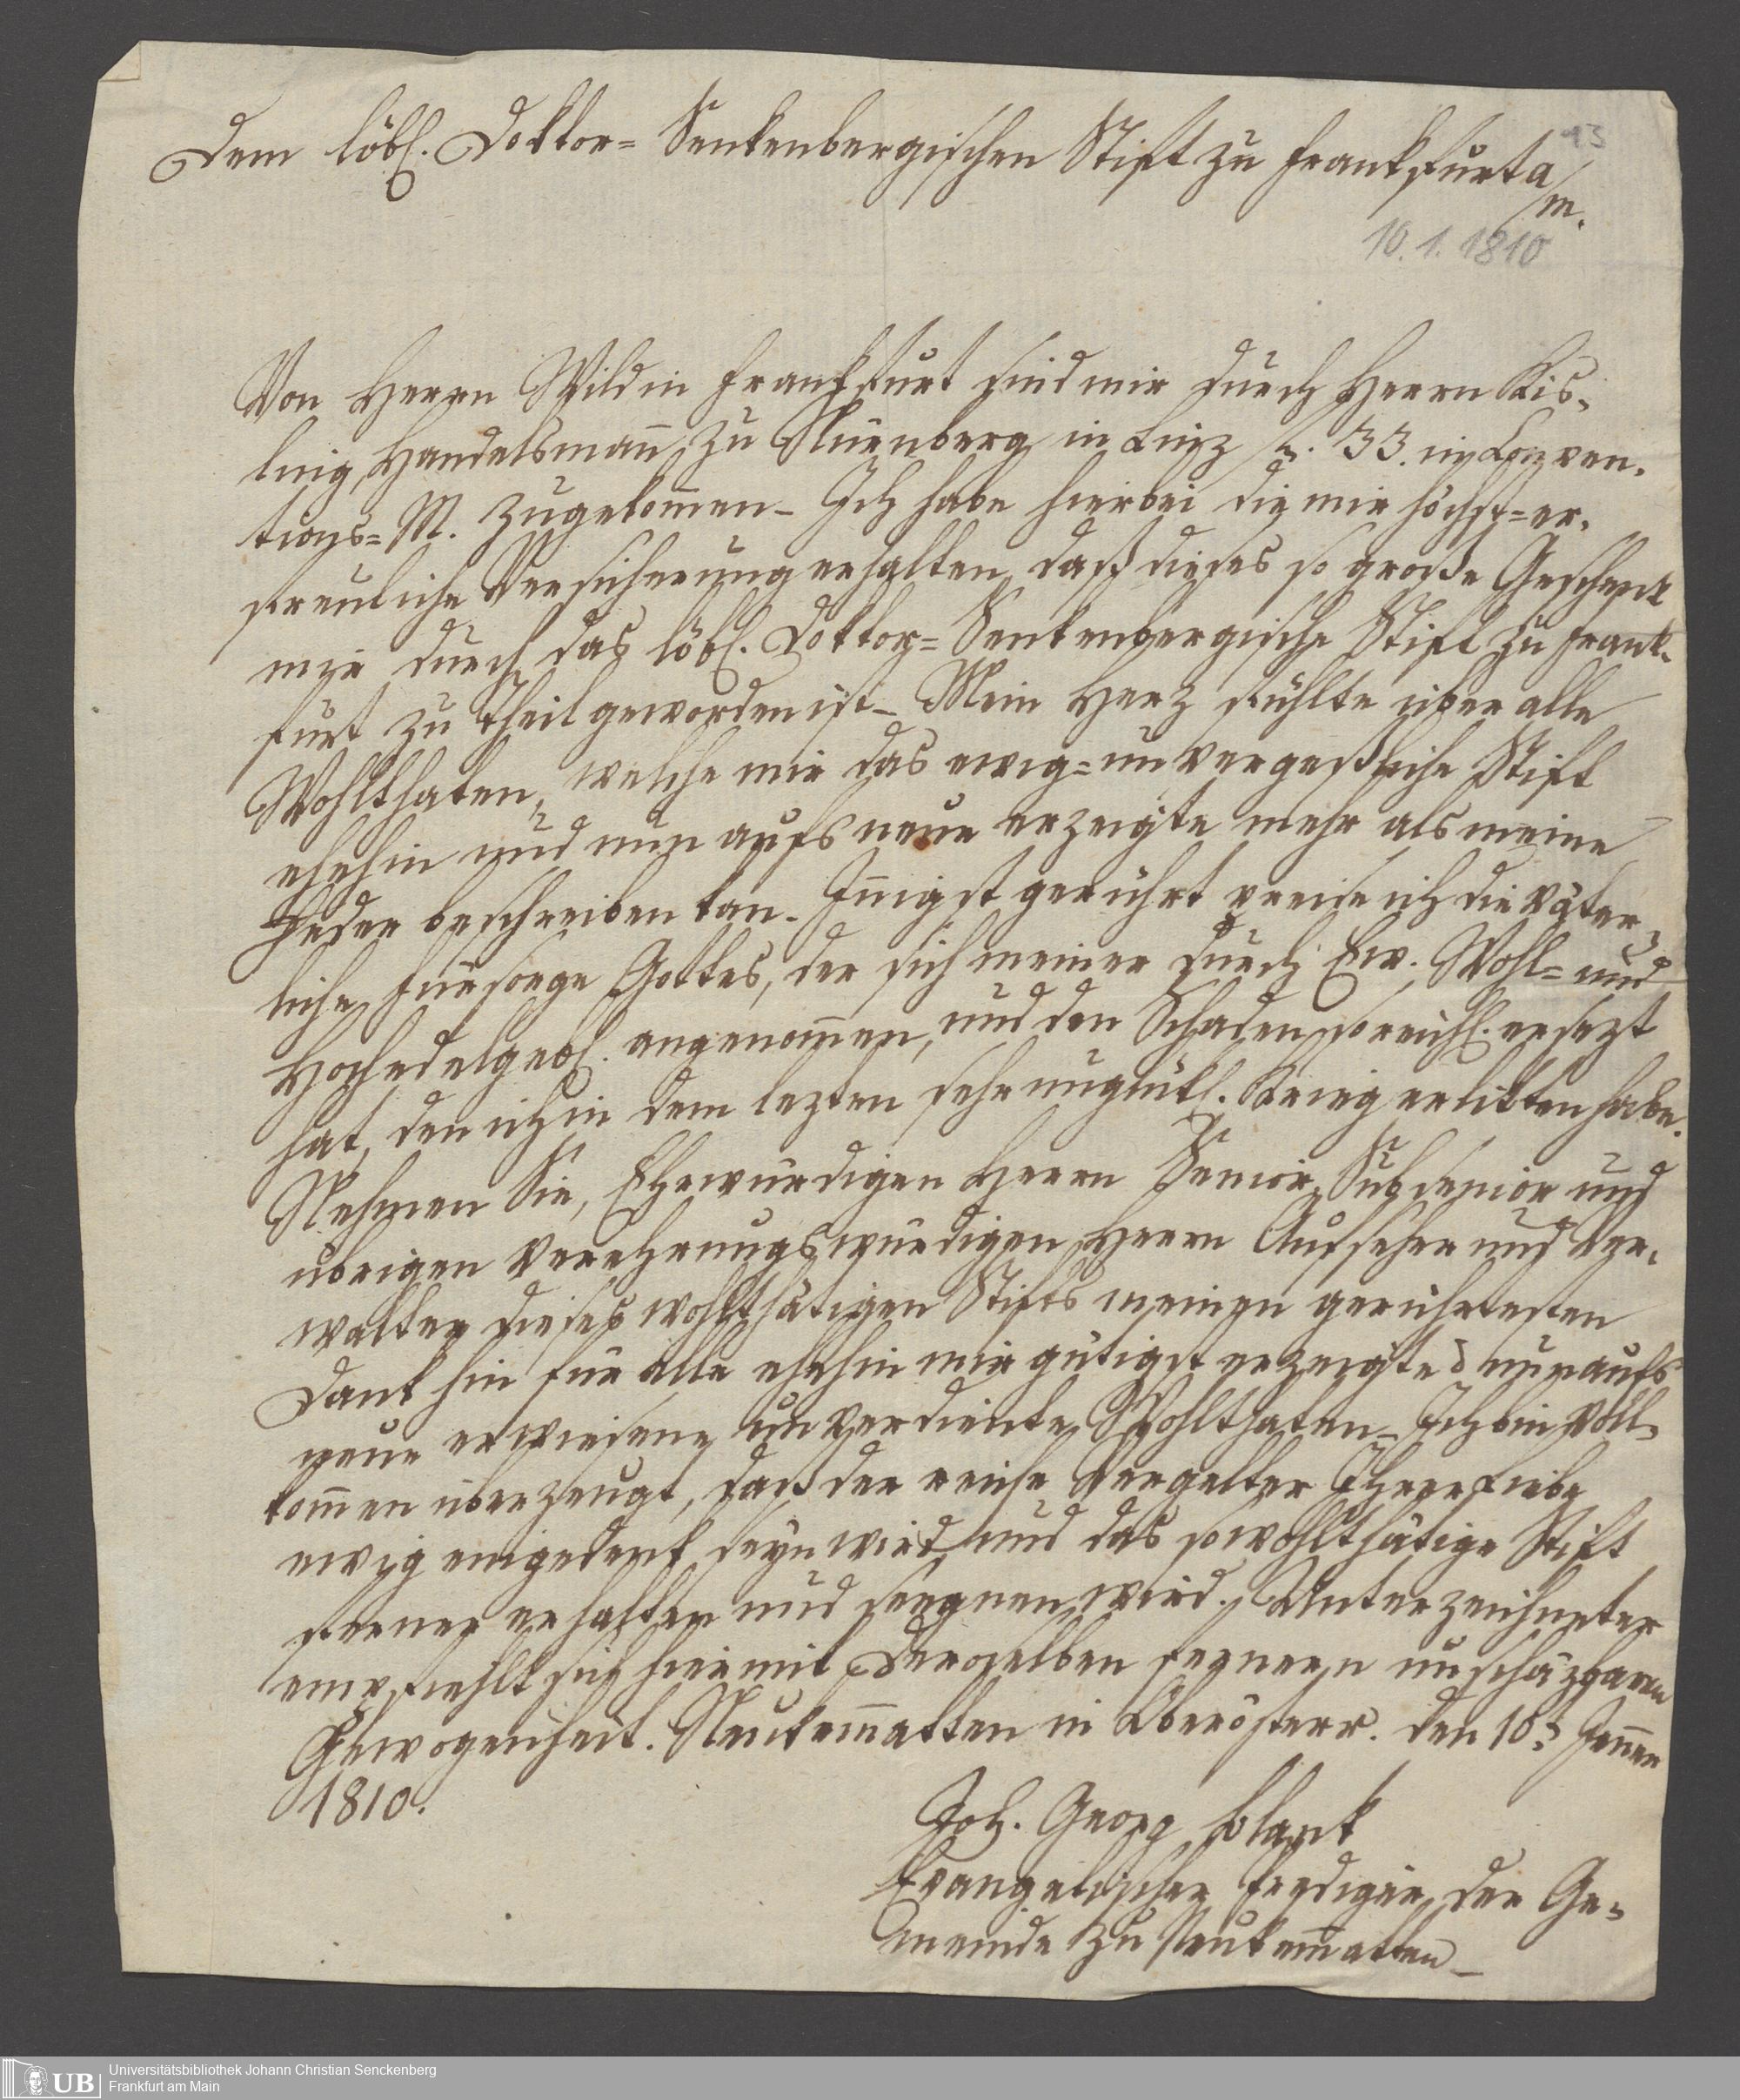 93
Dem löbl. Doktor= Senkenbergischen Stift zu Frankfurt a/m.
10. 1. 1810
Von Herrn Wild in Frankfurt sind mir durch Herrn Kis-
ling, Handelsmañ zu Nürnberg in Linz f. 33. in Konven-
tions=M. zugekom̄en_ Ich habe hierbei die mir höchst=er-
freuliche Versicherung erhalten, daß dieses so große Geschenk
mir durch das löbl. Doktor=Senkenbergische Stift zu Frank-
furt zu Theil geworden ist_ Mein Herz fühlte über alle
Wohlthaten, welche mir das ewig=unvergeßliche Stift
ehehin und nun aufs neue erzeigte mehr als meine
Feder beschreiben kan. Iñigst gerührt preise ich die väter-
liche Fürsorge Gottes, der sich meiner durch Ew. Wohl= und
Hochedelgebl. angenom̄en, und den Schaden so reichl. ersezt
hat, den ich in dem lezten sehr unglükl. Krieg erlitten habe.
Nehmen Sie, Ehrwürdigen Herrn Senior, Subsenior und
übrigen Verehrungswürdigen Herrn Aufseher und Ver-
walter dieses wohlthätigen Stifts meinen gerührtesten
Dank hin für alle ehehin mir gütigst erzeigte & nun aufs
neue erwiesene unverdiente Wohlthaten_ Ich bin voll-
kom̄en überzeugt, daß der reiche Vergelter Ihrer Liebe
ewig eingedenk seyn wird, und das so wohlthätige Stift
ferner erhalten und seegnen wird. Unterzeichneter
empfiehlt sich hiermit Deroselben fernern unschäzbaren
Gewogenheit. Neukem̄atten in Oberösterr. den 10t Jeñer
1810.
Joh. Georg Blank
Evangelischer Prediger der Ge-
meinde zu Neukem̄atten_
UB
Universitätsbibliothek Johann Christian Senckenberg
Frankfurt am Main